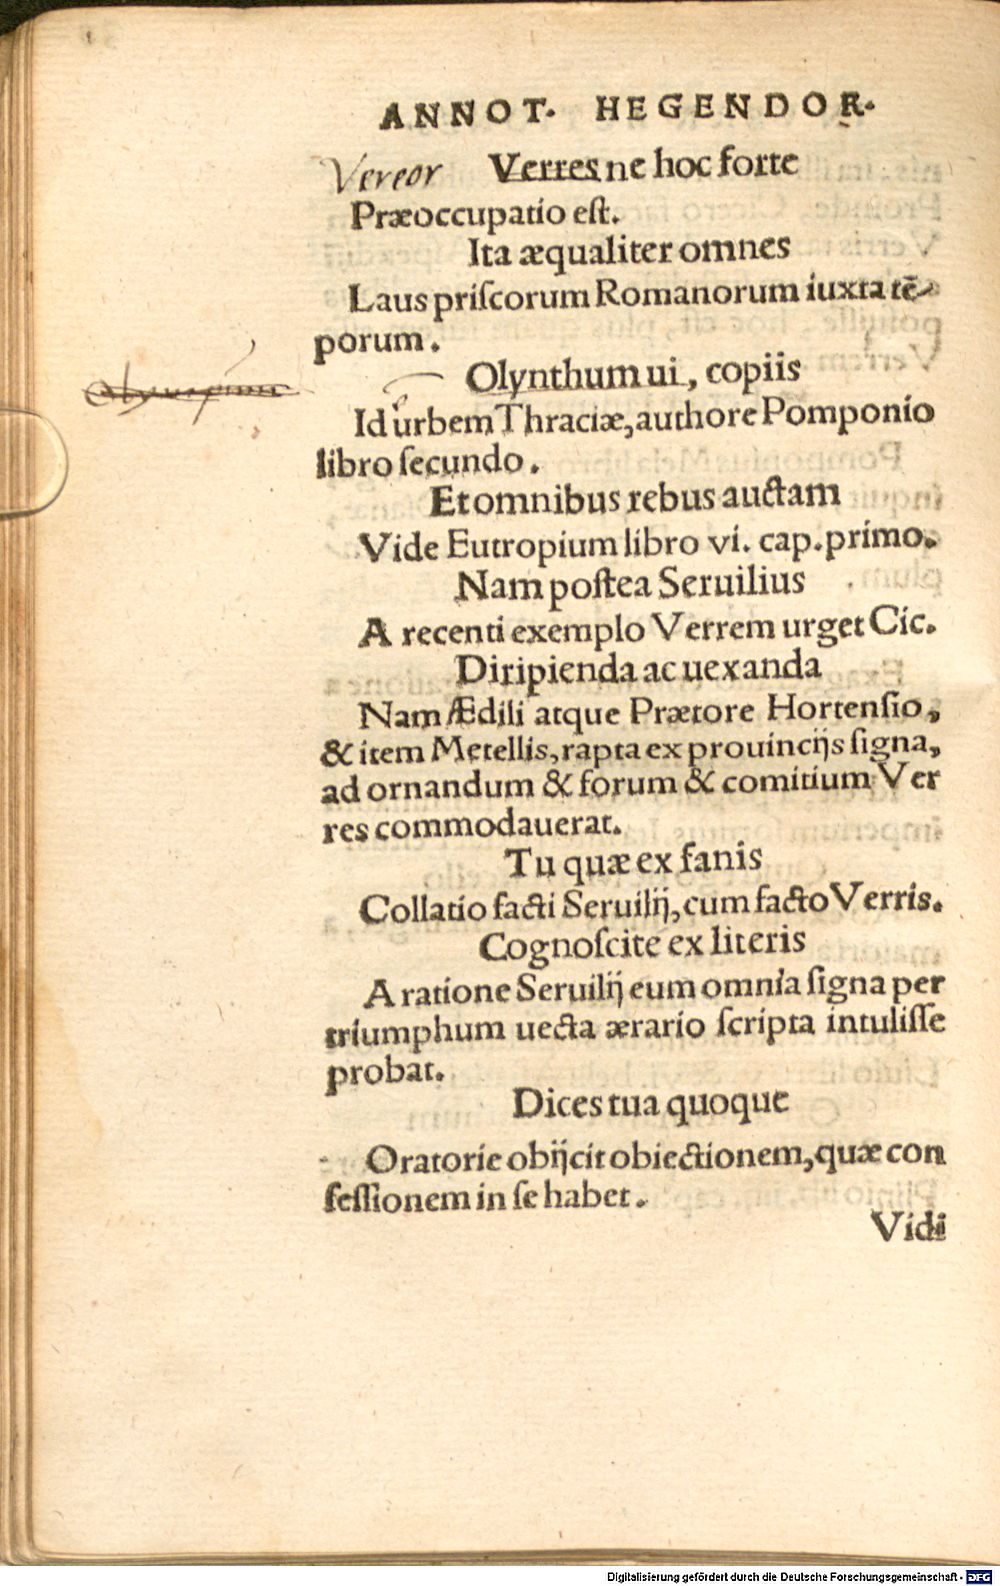 ANNOT. HEGENDOR.
Vereor Verres ne hoc forte
Præoccupatio eſt.
Ita æqualiter omnes
Laus priſcorum Romanorum iuxta tē-
porum.
Olynthum ui, copiis
Id urbem Thraciæ, authore Pomponio
libro ſecundo.
Et omnibus rebus auctam
Vide Eutropium libro vi. cap. primo.
Nam poſtea Seruilius
A recenti exemplo Verrem urget Cic.
Diripienda ac uexanda
Nam Ædili atque Prætore Hortenſio,
& item Metellis, rapta ex prouincijs ſigna,
ad ornandum & forum & comitium Ver
res commodauerat.
Tu quæ ex fanis
Collatio facti Seruilij, cum facto Verris.
Cognoſcite ex literis
A ratione Seruilij eum omnia ſigna per
triumphum uecta ærario ſcripta intuliſſe
probat.
Dices tua quoque
Oratorie obijcit obiectionem, quæ con
feſſionem in ſe habet.
Vidi
Digitalisierung gefördert durch die Deutsche Forschungsgemeinschaft - DFG